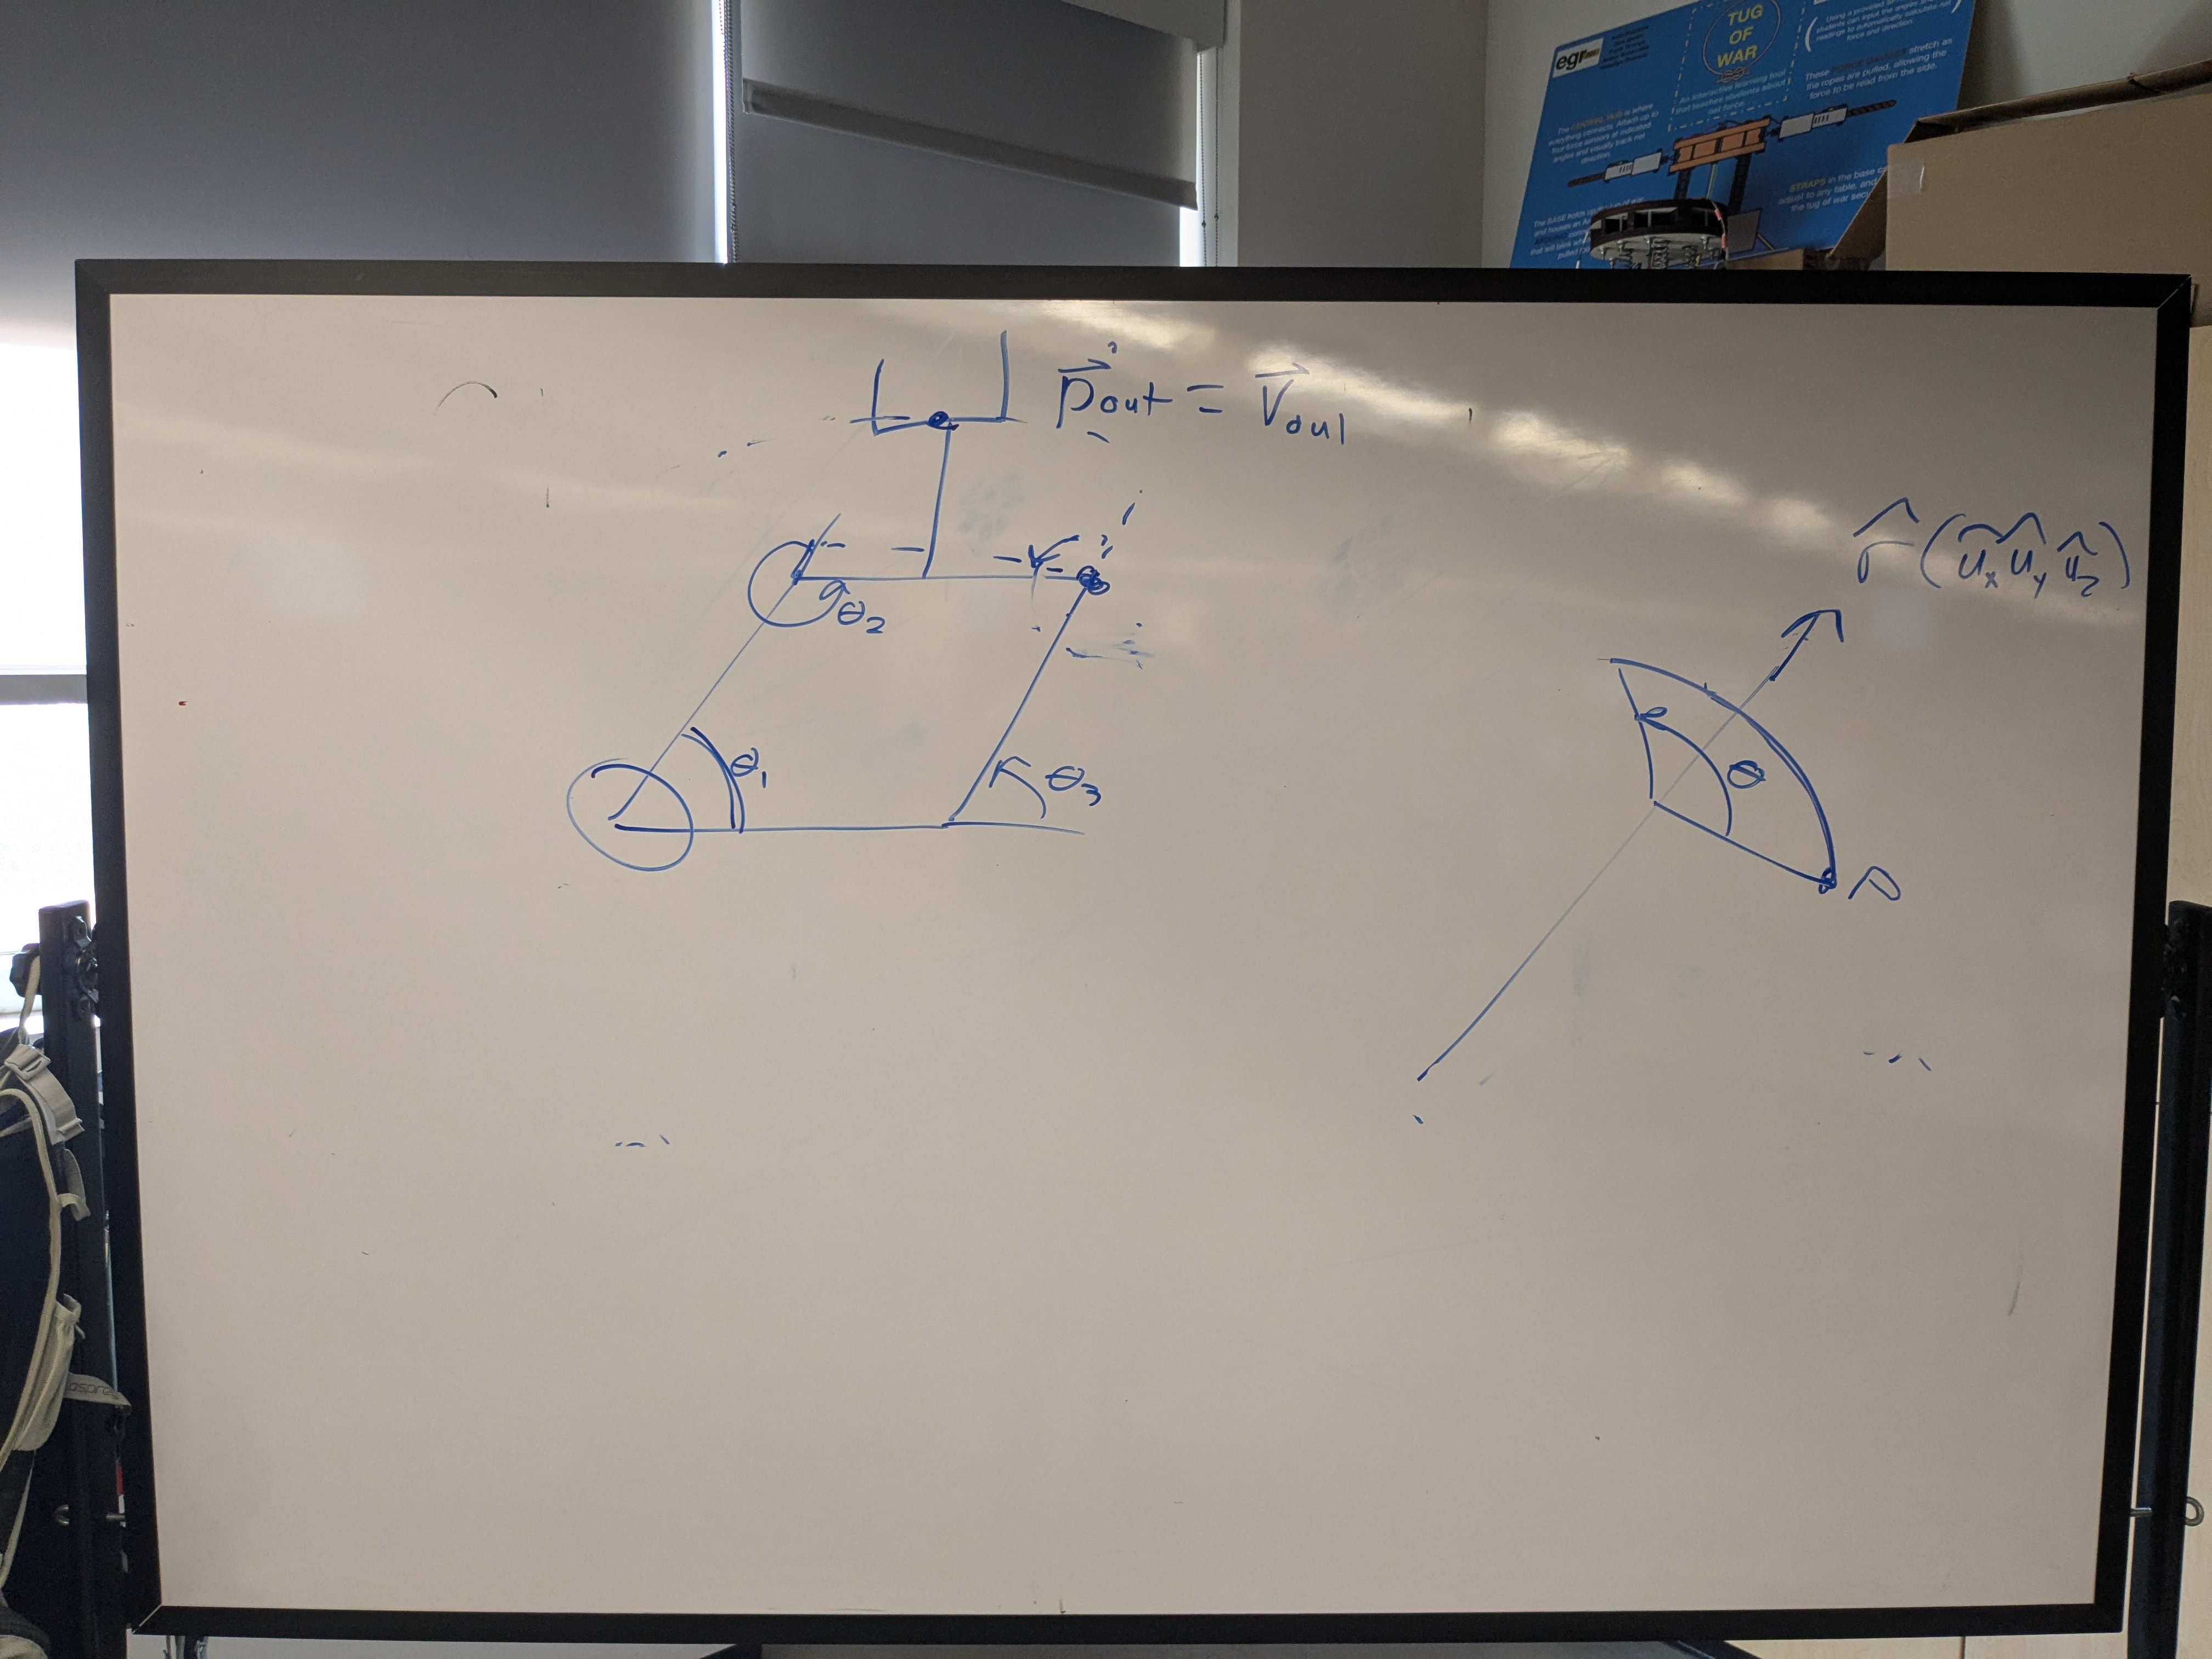 egr
TUG
OF
WAR
An interactive learning tool
that teaches students about
net force.
Using a provided
students can input the angles and
readings to automatically calculate net
force and direction.
These stretch as
the ropes are pulled, allowing the
force to be read from the side.
The CENTRAL HUB is where
everything connects. Attach up to
four force sensors at indicated
angles and visually track net
direction.
STRAPS in the base
adjust to any table, and
the tug of war
The BASE holds up
and houses an
that will
pulled
p⃗̇out = V⃗out
θ2
θ1
θ3
r̂ (ûx ûy ûz)
θ
P
osprey